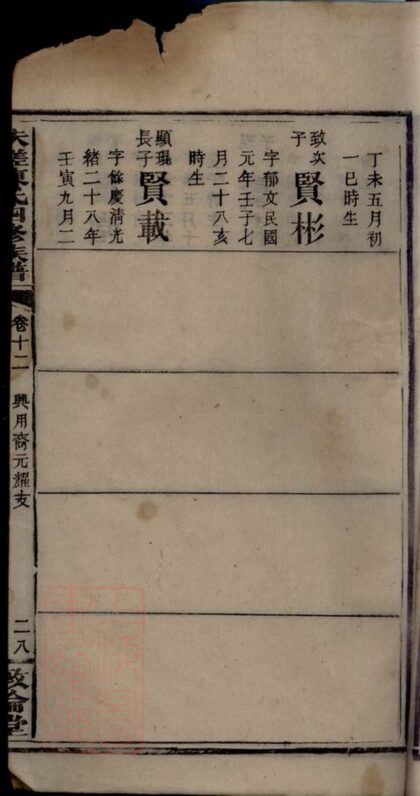 丁未五月初
一巳時生
致次
子
賢彬
字郁文民國
元年壬子七
月二十八亥
時生
顯琨
長子
賢載
字餘慶清光
緒二十八年
壬寅九月二
氏四修族譜
卷十二
興用裔元耀支
二八
敦倫堂